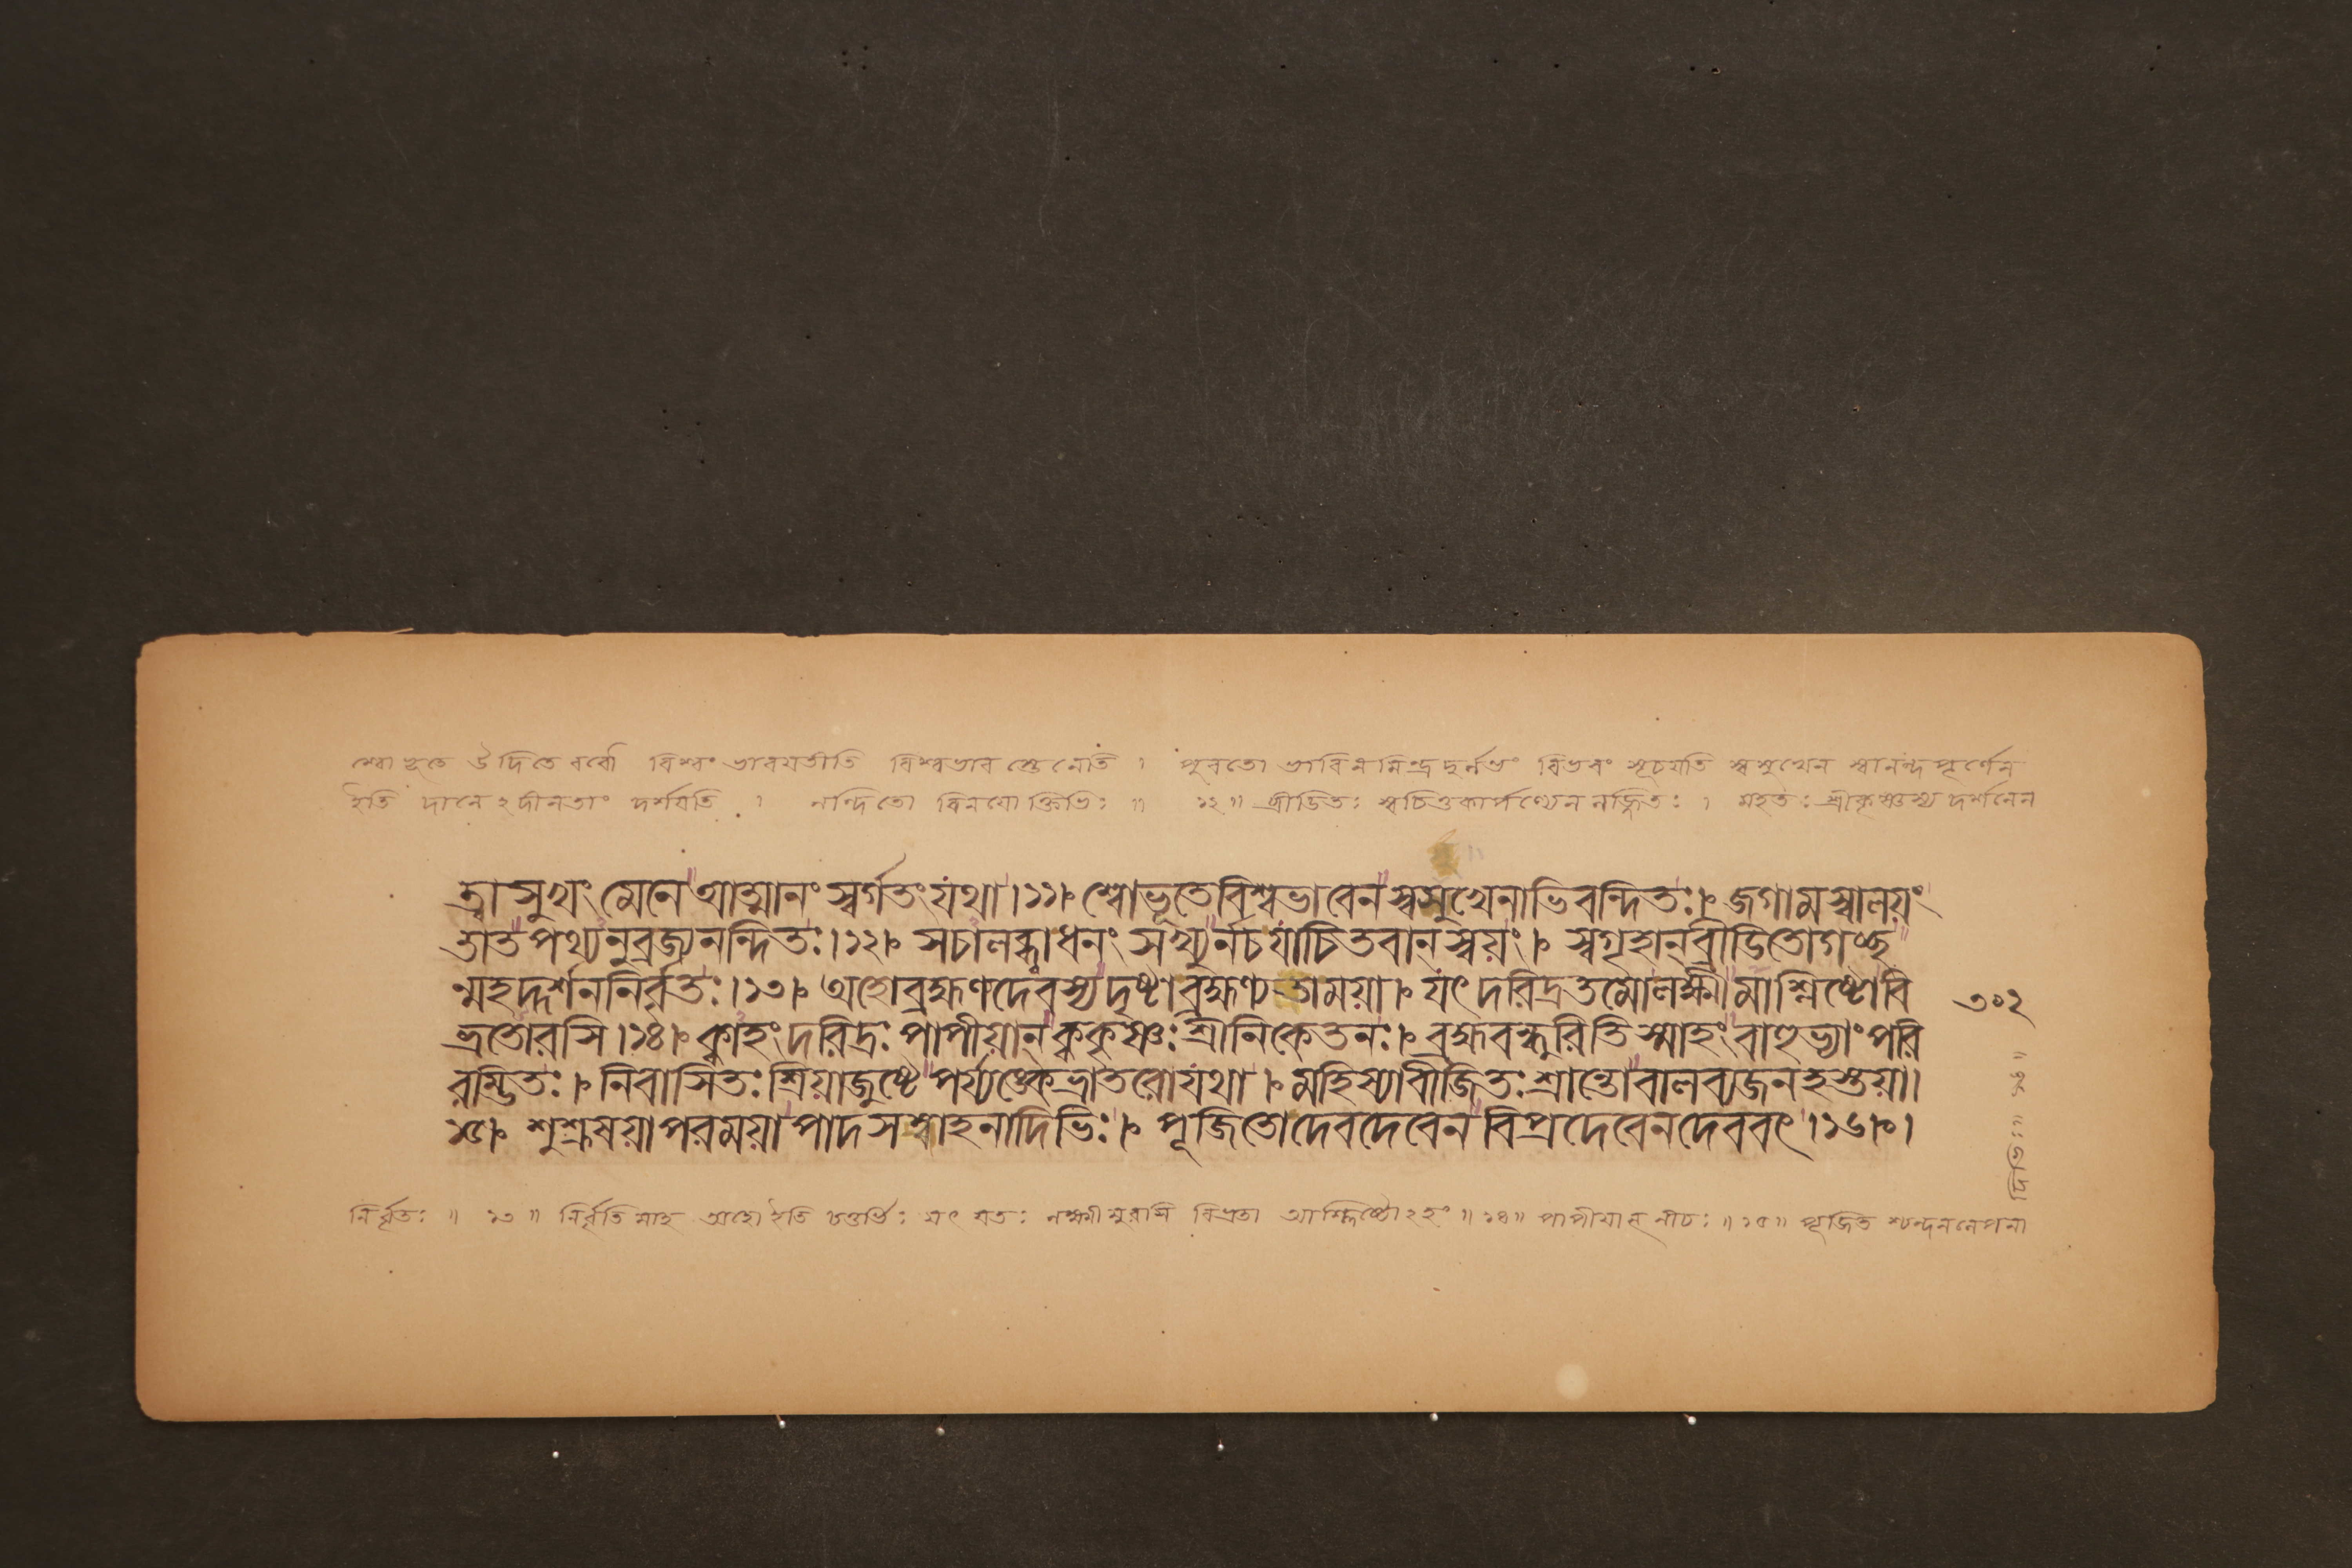 শ্বোভূতে উদিতে রবৌ বিশ্বং ভাবয়তীতি বিশ্বভাব স্তেনেতি । পুরতো ভাবিনমিন্দ্রদুর্লভং বিভবং সূচয়তি স্বসুখেন স্বানন্দপূর্ণেন
ইতি দানে২দীনতাং দর্শয়তি । নন্দিতো বিনয়োক্তিভিঃ ॥ ১২॥ ব্রীডিতঃ স্বচিত্তকার্পণ্যেন লজ্জিতঃ । মহতঃ শ্রীকৃষ্ণস্য দর্শনেন
ত্বা সুখং মেনে আত্মানং স্বর্গতং যথা।১১। শ্বোভূতেবিশ্বভাবেন স্বসুখেনাভিবন্দিতঃ। জগামস্বালয়ং
তাত পথ্যনুব্রজ্যনন্দিতঃ।১২। সচালব্ধ্বাধনং সখ্যুর্নচ যাচিতবান্ স্বয়ং। স্বগৃহান্ ব্রীডিতোগচ্ছ
ন্মহদ্দর্শননির্বৃতঃ।১৩। অহোব্রহ্মণ্যদেবস্য দৃষ্টা ব্রহ্মণ্যতাময়া। যৎ দরিদ্রতমোলক্ষ্মী মাশ্লিষ্টোবি
ভ্রতোরসি।১৪। ক্বাহং দরিদ্রঃ পাপীয়ান্ ক্বকৃষ্ণঃ শ্রীনিকেতনঃ। ব্রহ্মবন্ধুরিতি স্মাহং বাহুভ্যাং পরি
৩০২
রম্ভিতঃ। নিবাসিতঃ প্রিয়াজুষ্টে পর্য্যঙ্কেভ্রাতরোযথা। মহিষ্যাবীজিতঃ শ্রান্তোবালব্যজনহস্তয়া।
১৫। শুশ্রূষয়াপরময়া পাদসম্বাহনাদিভিঃ। পূজিতোদেবদেবেন বিপ্রদেবেনদেববৎ।১৬।
নির্বৃতঃ ॥ ১৩ ॥ নির্বৃতিমাহ অহো ইতি চতুর্ভিঃ যৎ যতঃ লক্ষ্মীমুরসি বিভ্রতা আশ্লিষ্টো২হং ॥১৪॥ পাপীয়ান্ নীচঃ ॥১৫॥ পূজিত শ্চন্দনলেপনা
দিভিঃ॥ ১৬॥